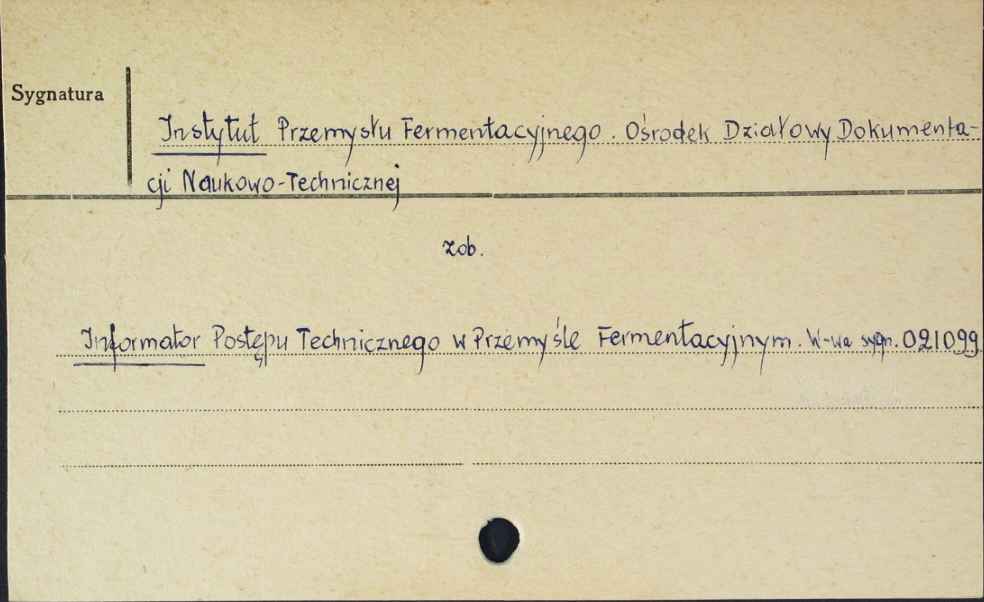 Sygnatura
Instytut Przemysłu Fermentacyjnego. Ośrodek Działowy Dokumenta-
cji Naukowo-Technicznej
zob.
Informator Postępu Technicznego w Przemyśle Fermentacyjnym. W-wa sygn. 021099